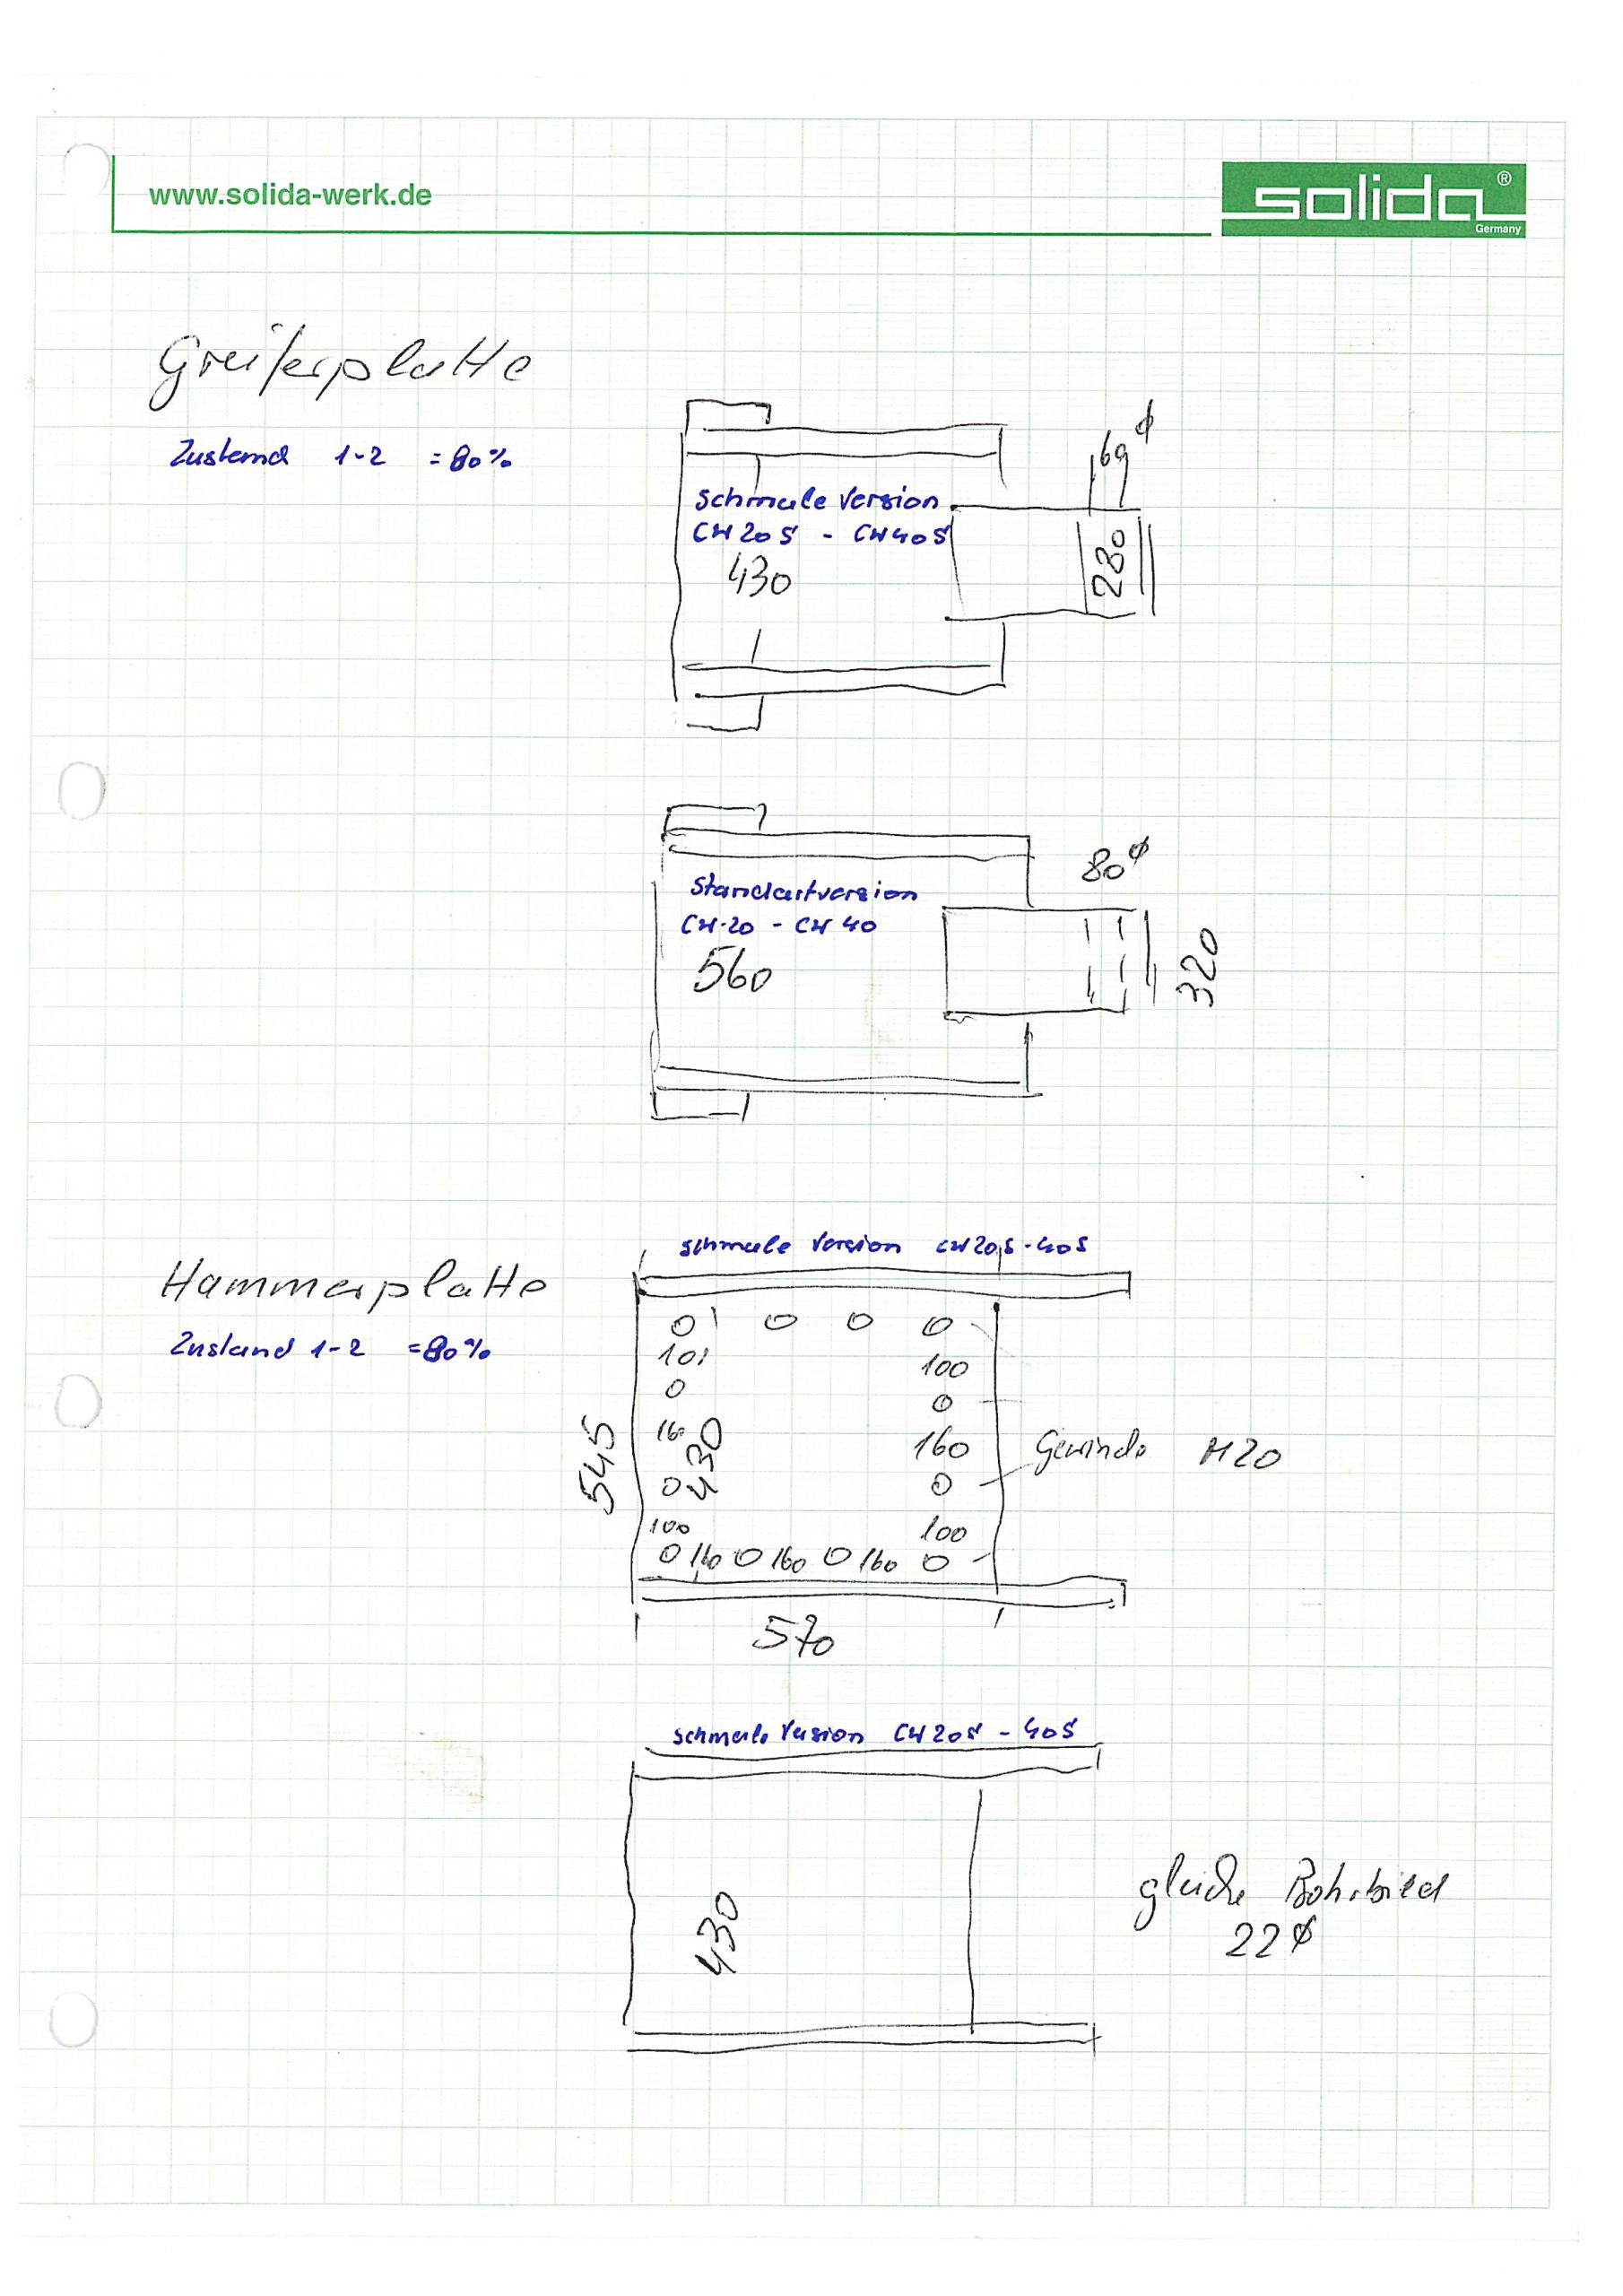 www.solida-werk.de
solida®
Germany
Greiferplatte
Zustand 1-2 = 80%
69 ø
schmale Version
CW 20 S - CW 40 S
430
280
80 ø
Standartversion
CW-20 - CW 40
560
320
schmale Version CW 20S - 40S
Hammerplatte
Zustand 1-2 = 80%
0 0 0 0
100
0
0
545
160
430
160
Gewinde M20
0
0
100
100
0 160 0 160 0 160 0
570
schmale Version CW 20S - 40S
430
gleiche Bohrbild
22 ø